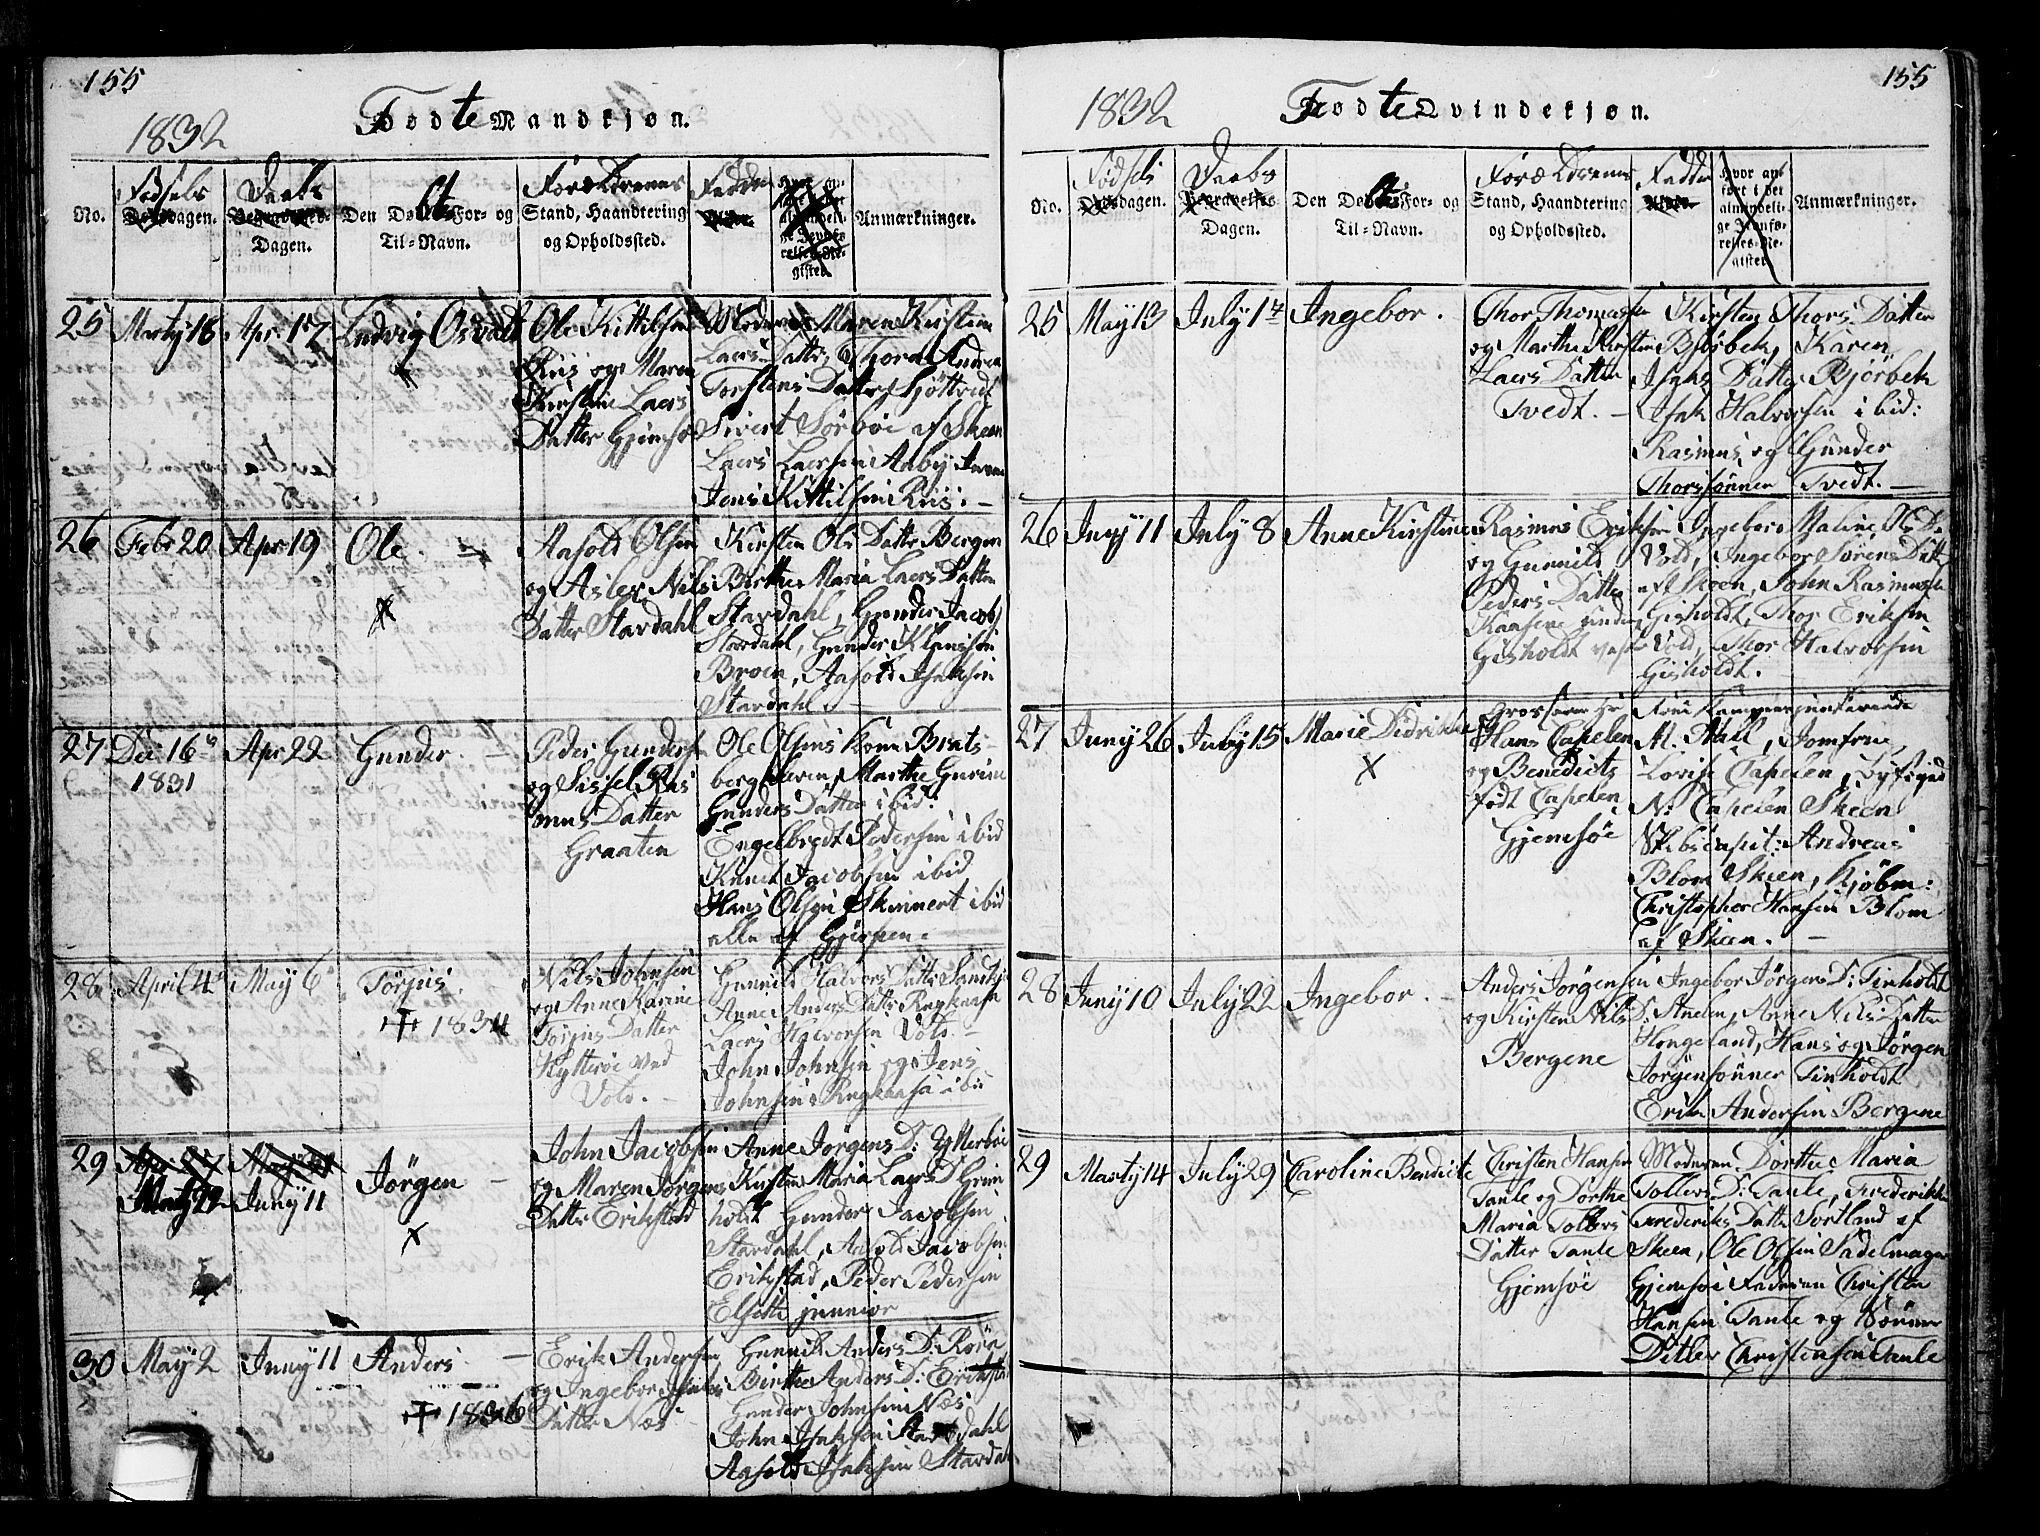 155
1832
Födte Mandkjøn.
No.
Födsels
dagen.
Daabs
Dagen.
Den For- og
Til-Navn.
Forældrenes
Stand, Haandtering
og Opholdssted.
Anmærkninger.
25
Marty 16
Apr. 17
Ludvig Osvald
Ole Kittilsen
Riis og Maren
Kirstine Laers
Datter Gjemsö
Moderen Maren Kirstine
Laers Datter, Thora Andrea
Torstens Datter
Sivert Sörböe af Skeen
Laers Laersen Aaby
Jens Kittilsen Riis. —
26
Febr 20
Apr 19
Ole.
Aasold Olsen
og Aslex Nils
Datter Stardahl
Kirsten Ols Datter Bergen
Birthe Maria Laers Datter
Stardahl, Gunder Jacobs
Stardahl, Gunder Klausen
Broen, Aasold Isaksen
Stardahl. —
27
Dec 16
1831
Apr 22
Gunder
Peder Gunders
og Sissel Ras
mus Datter
Graaten
Ole Olsens Kone Brats-
bergkleven, Marthe Gurine
Gunders Datter ibid:
Engelbredt Pedersen ibid
Knud Jacobsen ibid
Hans Olsen Skinnert ibid
alle af Gjerpen.
28
April 4
May 6
Törjus.
1834
Nils Johnsen
og Anne Karine
Törjus Datter
Kytteröe ved
Vold. —
Gunnild Halvors Datter
Anne Anders Datter Rugkaasa
Laers Halvorsen Vold. —
John Johnsen og Jens
Johnsen Rugkaasa ibid
29
Marty 29
Juny 11
Jörgen
John Jacobsen
og Maren Jörgens
Datter Erikstad
Anne Jörgens D: Ytterböe
Kirsten Maria Laers D Grin
holdt Gunder Jacobsen
Stardahl, Aasold Jacobsen
Erikstad, Peder Pedersen
Elsette junnior
30
May 2
Juny 11
Anders
1836
Erik Andersen
og Ingebor
Datter Næs
Gunnild Anders D: Röra
Birthe Anders D: Erikstad
Gunder Johnsen Næs
John Isaksen Stardahl
Aasold Isaksen Stardahl
155
1832
Födte Qvindekjøn.
No.
Födsels
dagen.
Daabs
Dagen.
Den For- og
Til-Navn.
Forældrenes
Stand, Haandtering
og Opholdssted.
Fadder
Hvor an-
ført i det
almindeli-
ge Jevnfø-
relses-Re-
gister.
Anmærkninger.
25
May 13
July 1
Ingebor.
Thor Thomasen
og Marthe Kirsten
Laers Datter
Tvedt. —
Kirsten Thors Datter
Bjørbek, Karen
Isaks Datter Bjørbek
Isak Halvorsen ibid:
Rasmus og Gunder
Thorssønner Tvedt. —
26
Juny 11
July 8
Anne Kirstine
Rasmus Eriksen
og Gunnild
Peders Datter
Kaasene under
Gisholdt
Ingebor Maline
Vold, Ingebor Sörens Datter
af Skeen, John Rasmussen
Gisholdt, Thor Eriksen
Vold, Thor Halvorsen
Gisholdt.
27
Juny 26
July 15
Marie Didrikke
Grosserer Hr
Hans Capelen
og Benedicte
født Capelen
Gjemsöe
Frue Kammerjunkerinde
M. Aall, Jomfrue
Lovise Capelen, Byfoged
N: Capelen Skeen
Skibscapit: Andreas
Blom Skeen, Kjöbm:
Christopher Hansen Blom
af Skeen. —
28
Juny 10
July 22
Ingebor. —
Anders Jörgensen
og Kirsten Nils D:
Bergene
Ingebor Jörgens D: Finholdt
Anelen, Anne Nils Datter
Hongeland, Hans og Jörgen
Jörgensönner Finholdt
Erik Andersen Bergene
29
Marty 14
July 29
Caroline Bendicte
Christen Hansen
Tanle og Dorthe
Maria Tollers
Datter Tanle
Gjemsöe
Moderen Dorthe Maria
Tollers D: Tanle, Frederikke
Frederiks Datter Sortland af
Skeen, Ole Olsen Sadelmager
Gjemsöe Faderen Christen
Hansen Tanle og Sönnen
Ditler Christensen Tanle